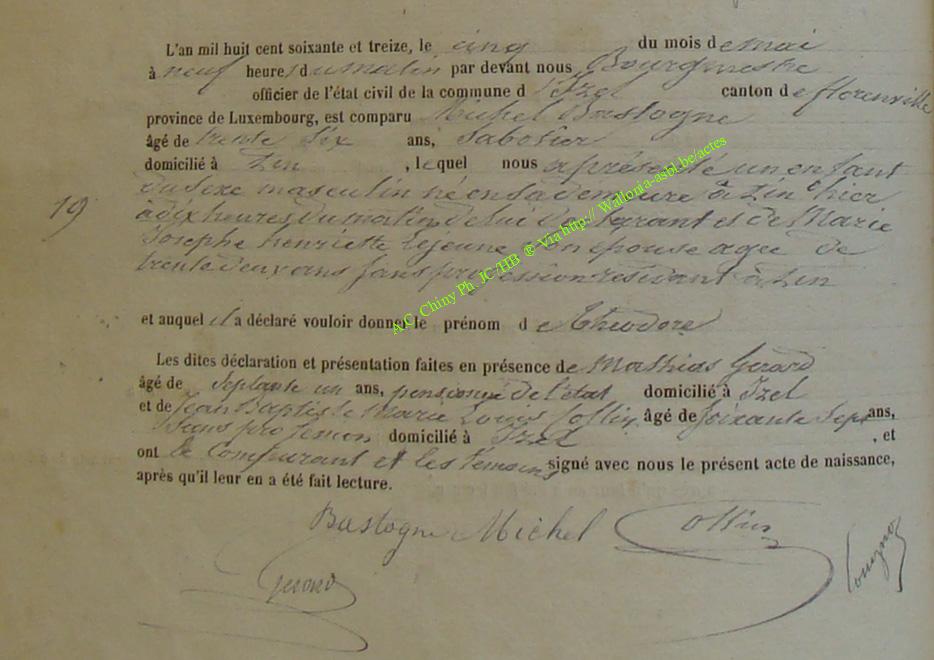 L'an mil huit cent soixante et treize, le cinq du mois de mai
à neuf heures du matin par devant nous Bourgmestre
officier de l'état civil de la commune d'Izel canton de florenville
province de Luxembourg, est comparu Michel Bastogne
âgé de trente six ans, Sabotier
domicilié à Zin, lequel nous a présenté un enfant
du sexe masculin né en sa demeure à Zin hier
19 à dix heures du matin de lui déclarant et de Marie
Josephe henriette Lejeune son épouse agée de
trente deux ans sans profession residant à Zin
et auquel il a déclaré vouloir donner le prénom de Théodore
Les dites déclaration et présentation faites en présence de Mathias Gerard
âgé de Septante un ans, pensionné de l'état domicilié à Izel
et de Jean Baptiste Marie Louis Collin âgé de soixante Sept ans,
Sans profession domicilié à Izel, et
ont le Comparant et les témoins signé avec nous le présent acte de naissance,
après qu'il leur en a été fait lecture.
Bastogne Michel Collin
Gerard
A.C. Chiny Ph. JC/HB ® Via http:// Wallonia-asbl.be/actes